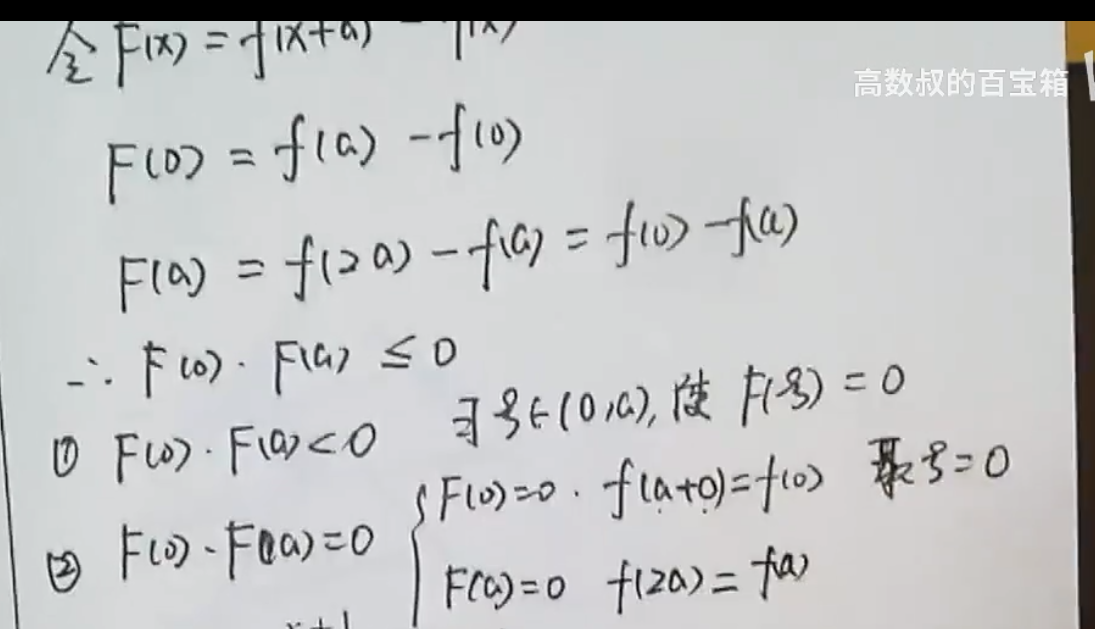 令 F(x) = f(x+a) - f(x)
高数叔的百宝箱
F(0) = f(a) - f(0)
F(a) = f(2a) - f(a) = f(0) - f(a)
∴ F(0) · F(a) ≤ 0
① F(0) · F(a) < 0 ∃ ξ ∈ (0,a), 使 F(ξ) = 0
② F(0) · F(a) = 0 { F(0) = 0 . f(a+0) = f(0) 取 ξ = 0
F(a) = 0 f(2a) = f(a)